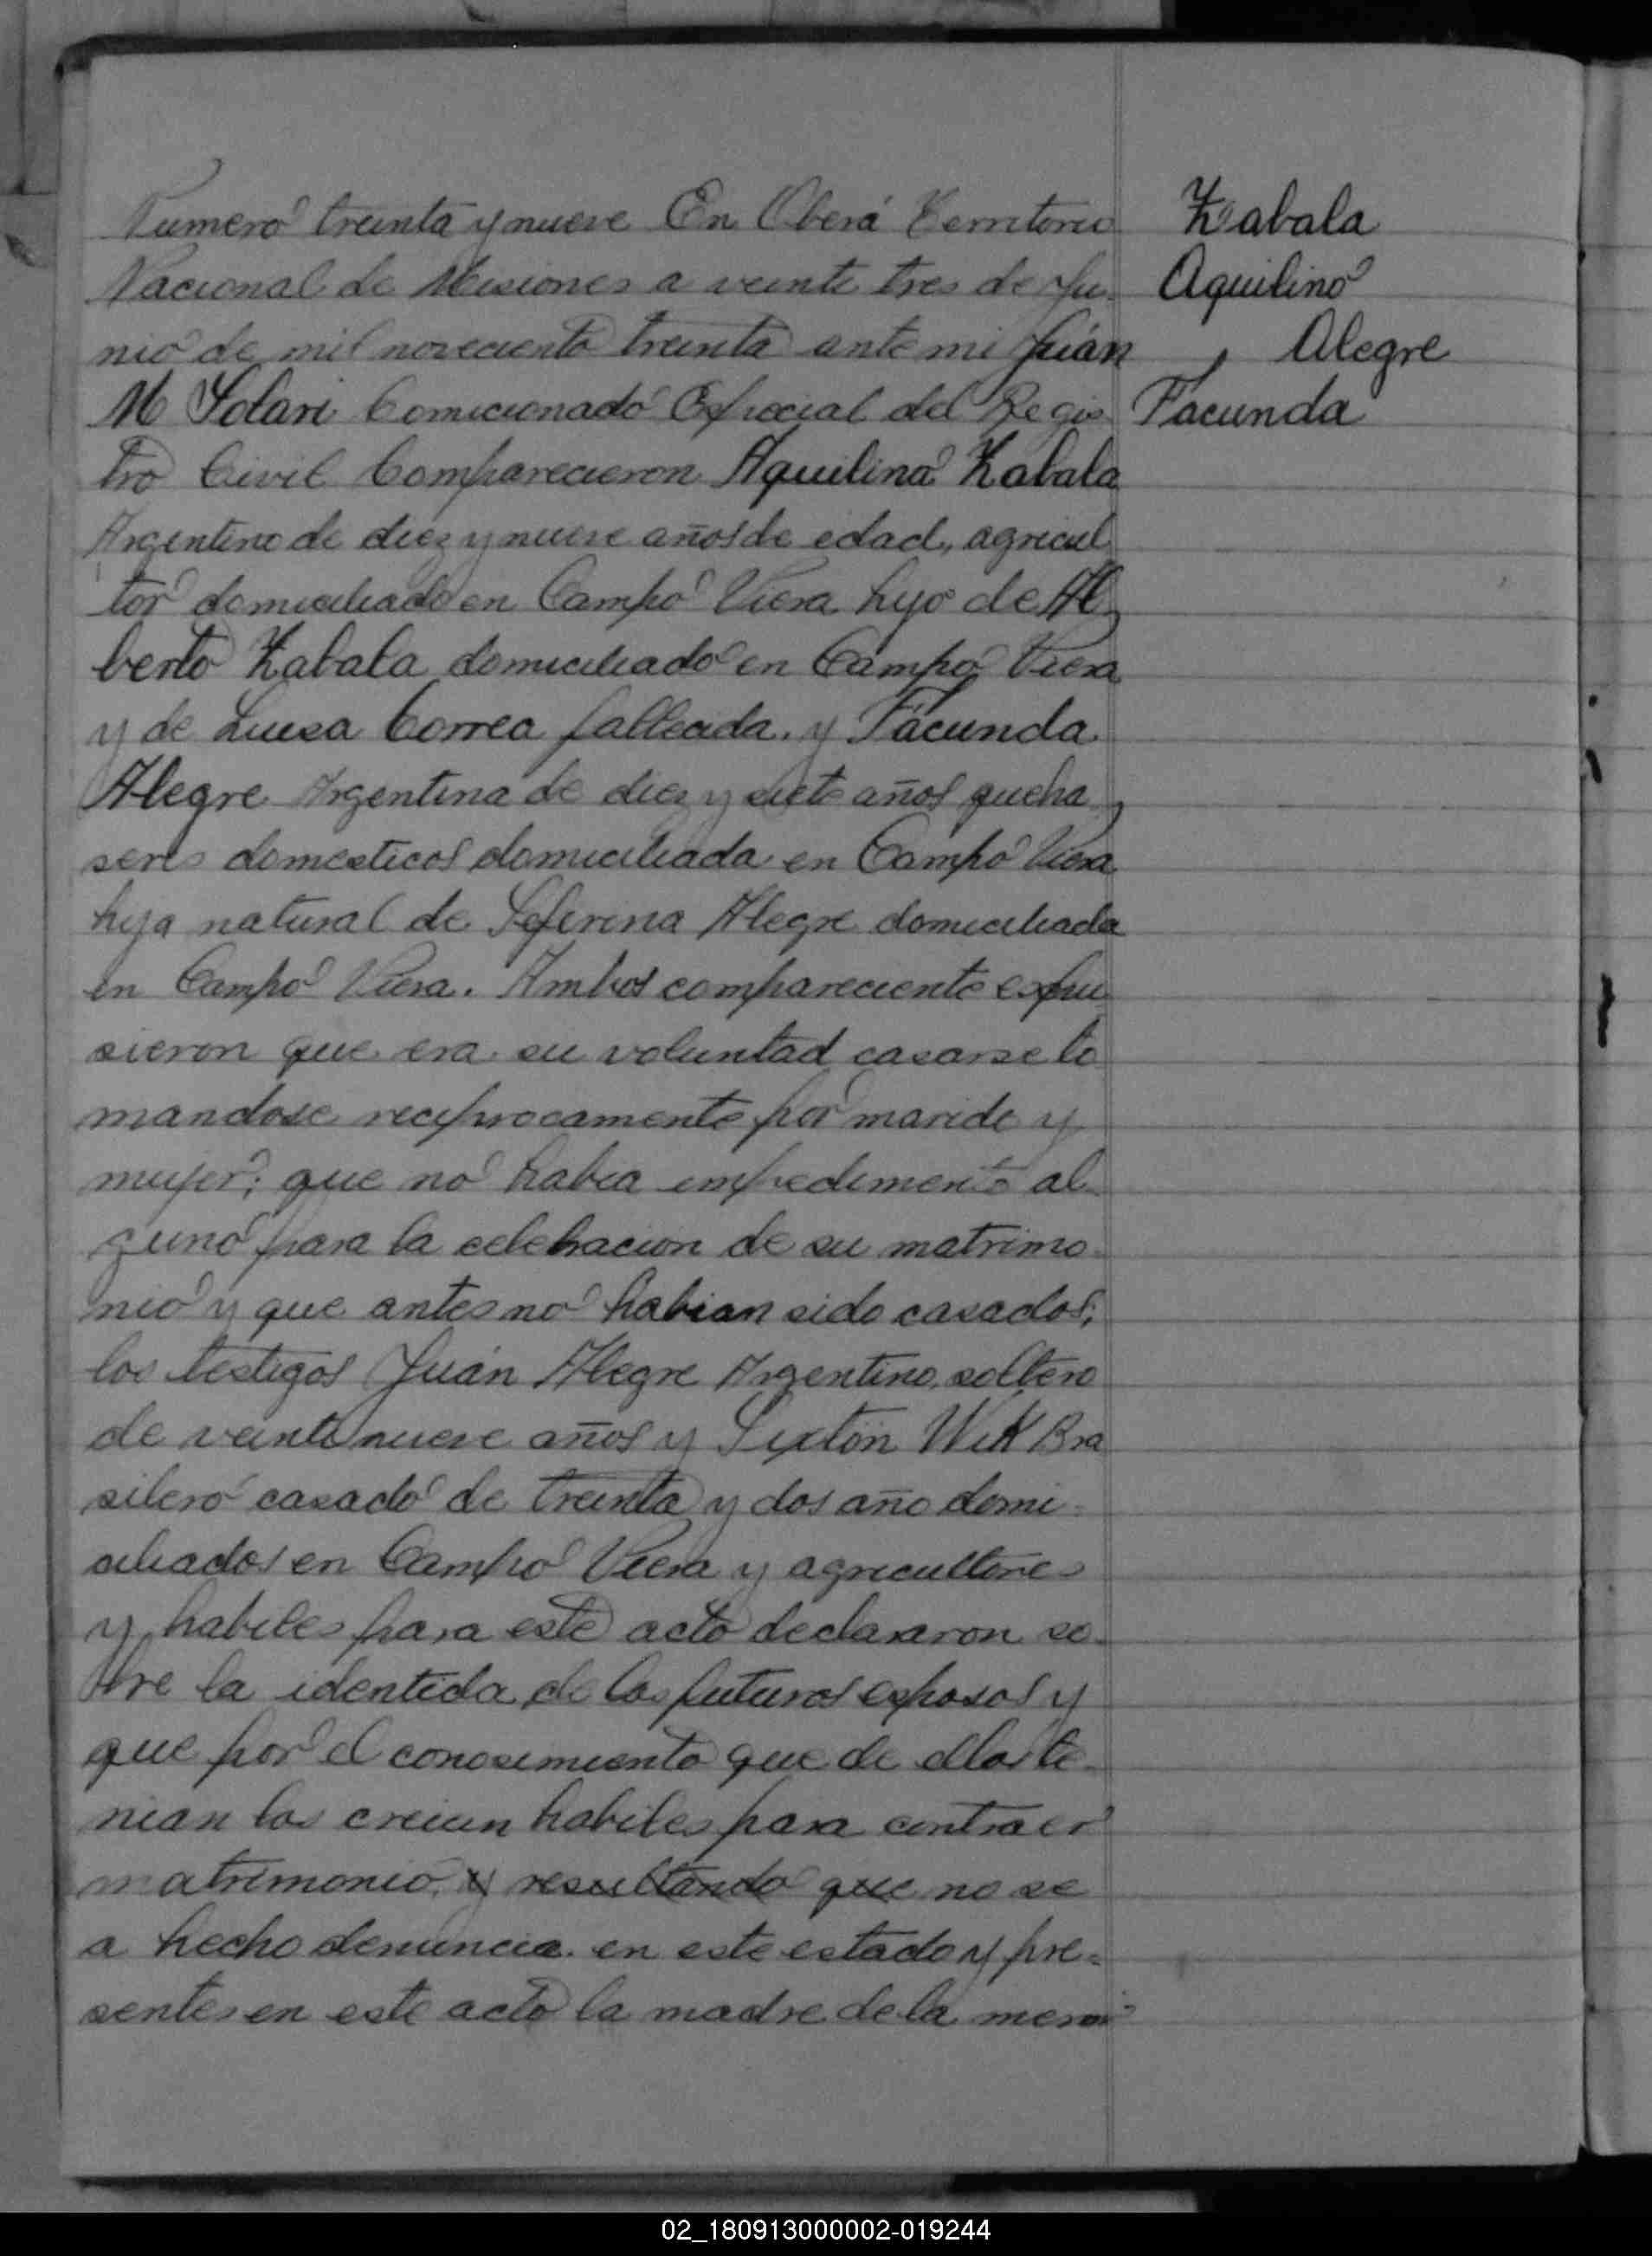 Numero treinta y nueve En Oberá Territorio
Nacional de Misiones a veinte tres de Ju-
nio de mil noveciento treinta ante mi Juán
M Solari Comicionado Especial del Regis
tro Civil Comparecieron Aquilino Zabala
Argentino de diez y nueve años de edad, agricul
tor domiciliado en Campo Viera hijo de Al
berto Zabala domiciliado en Campo Viera
y de Luisa Correa fallecida. y Facunda
Alegre Argentina de diez y siete años queha
seres domesticos domiciliada en Campo Viera
hija natural de Seferina Alegre domiciliada
en Campo Viera. Ambos compareciente expu
sieron que era su voluntad casarse to
mandose reciprocamente por marido y
mujer; que no habia impedimento al-
guno para la celebracion de su matrimo-
nio y que antes no habian sido casados;
los testigos Juán Alegre Argentino, soltero
de veinte nueve años y Sixtön Wik Bra
silero casado de treinta y dos año domi-
ciliados en Campo Viera y agricultores
y habiles para este acto declararon so-
bre la identida de los futuros esposos y
que por el conosimiento que de ellos te-
nian los creian habiles para contraer
matrimonio. y resultando que no se
a hecho denuncia. en este estado y pre-
sentes en este acto la madre de la menor
Zabala
Aquilino
, Alegre
Facunda
02_180913000002-019244